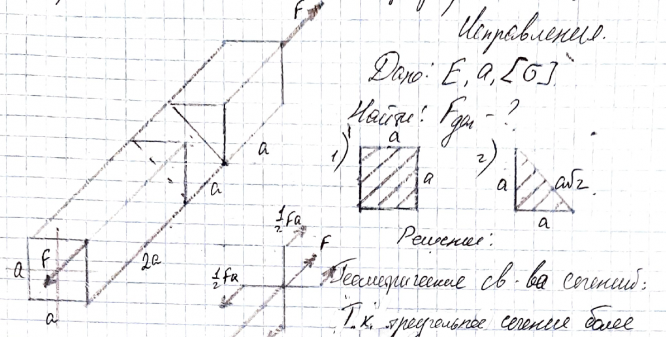 F
Исправления.
Дано: E, a, [σ]
Найти: Fдоп - ?
1) a a
2) a a√2 a
a
a
2a
F
a
a
½Fa
½Fa
F
Решение:
Геометрические св-ва сечений:
Т.к. треугольное сечение более